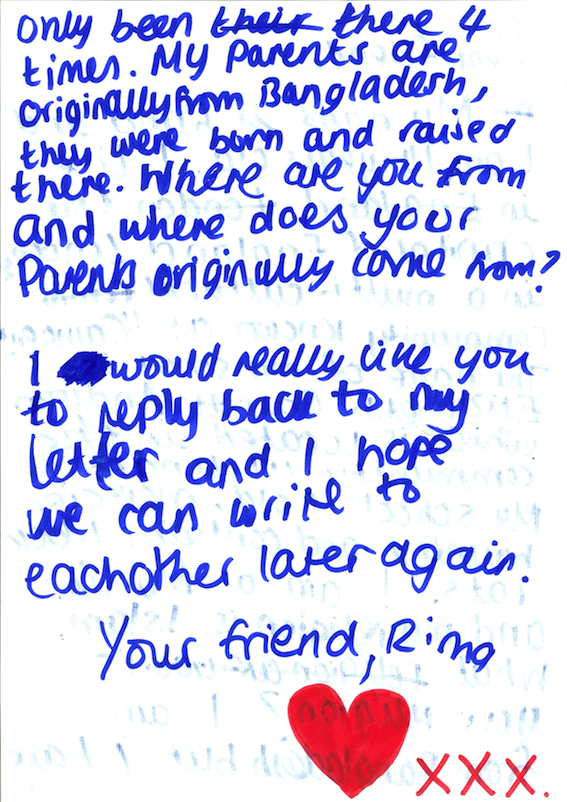 only been their there 4
times. My parents are
originally from Bangladesh,
they were born and raised
there. Where are you from
and where does your
Parents originally come from?
I would really like you
to reply back to my
letter and I hope
we can write to
eachother later again.
Your friend, Rima
xxx.